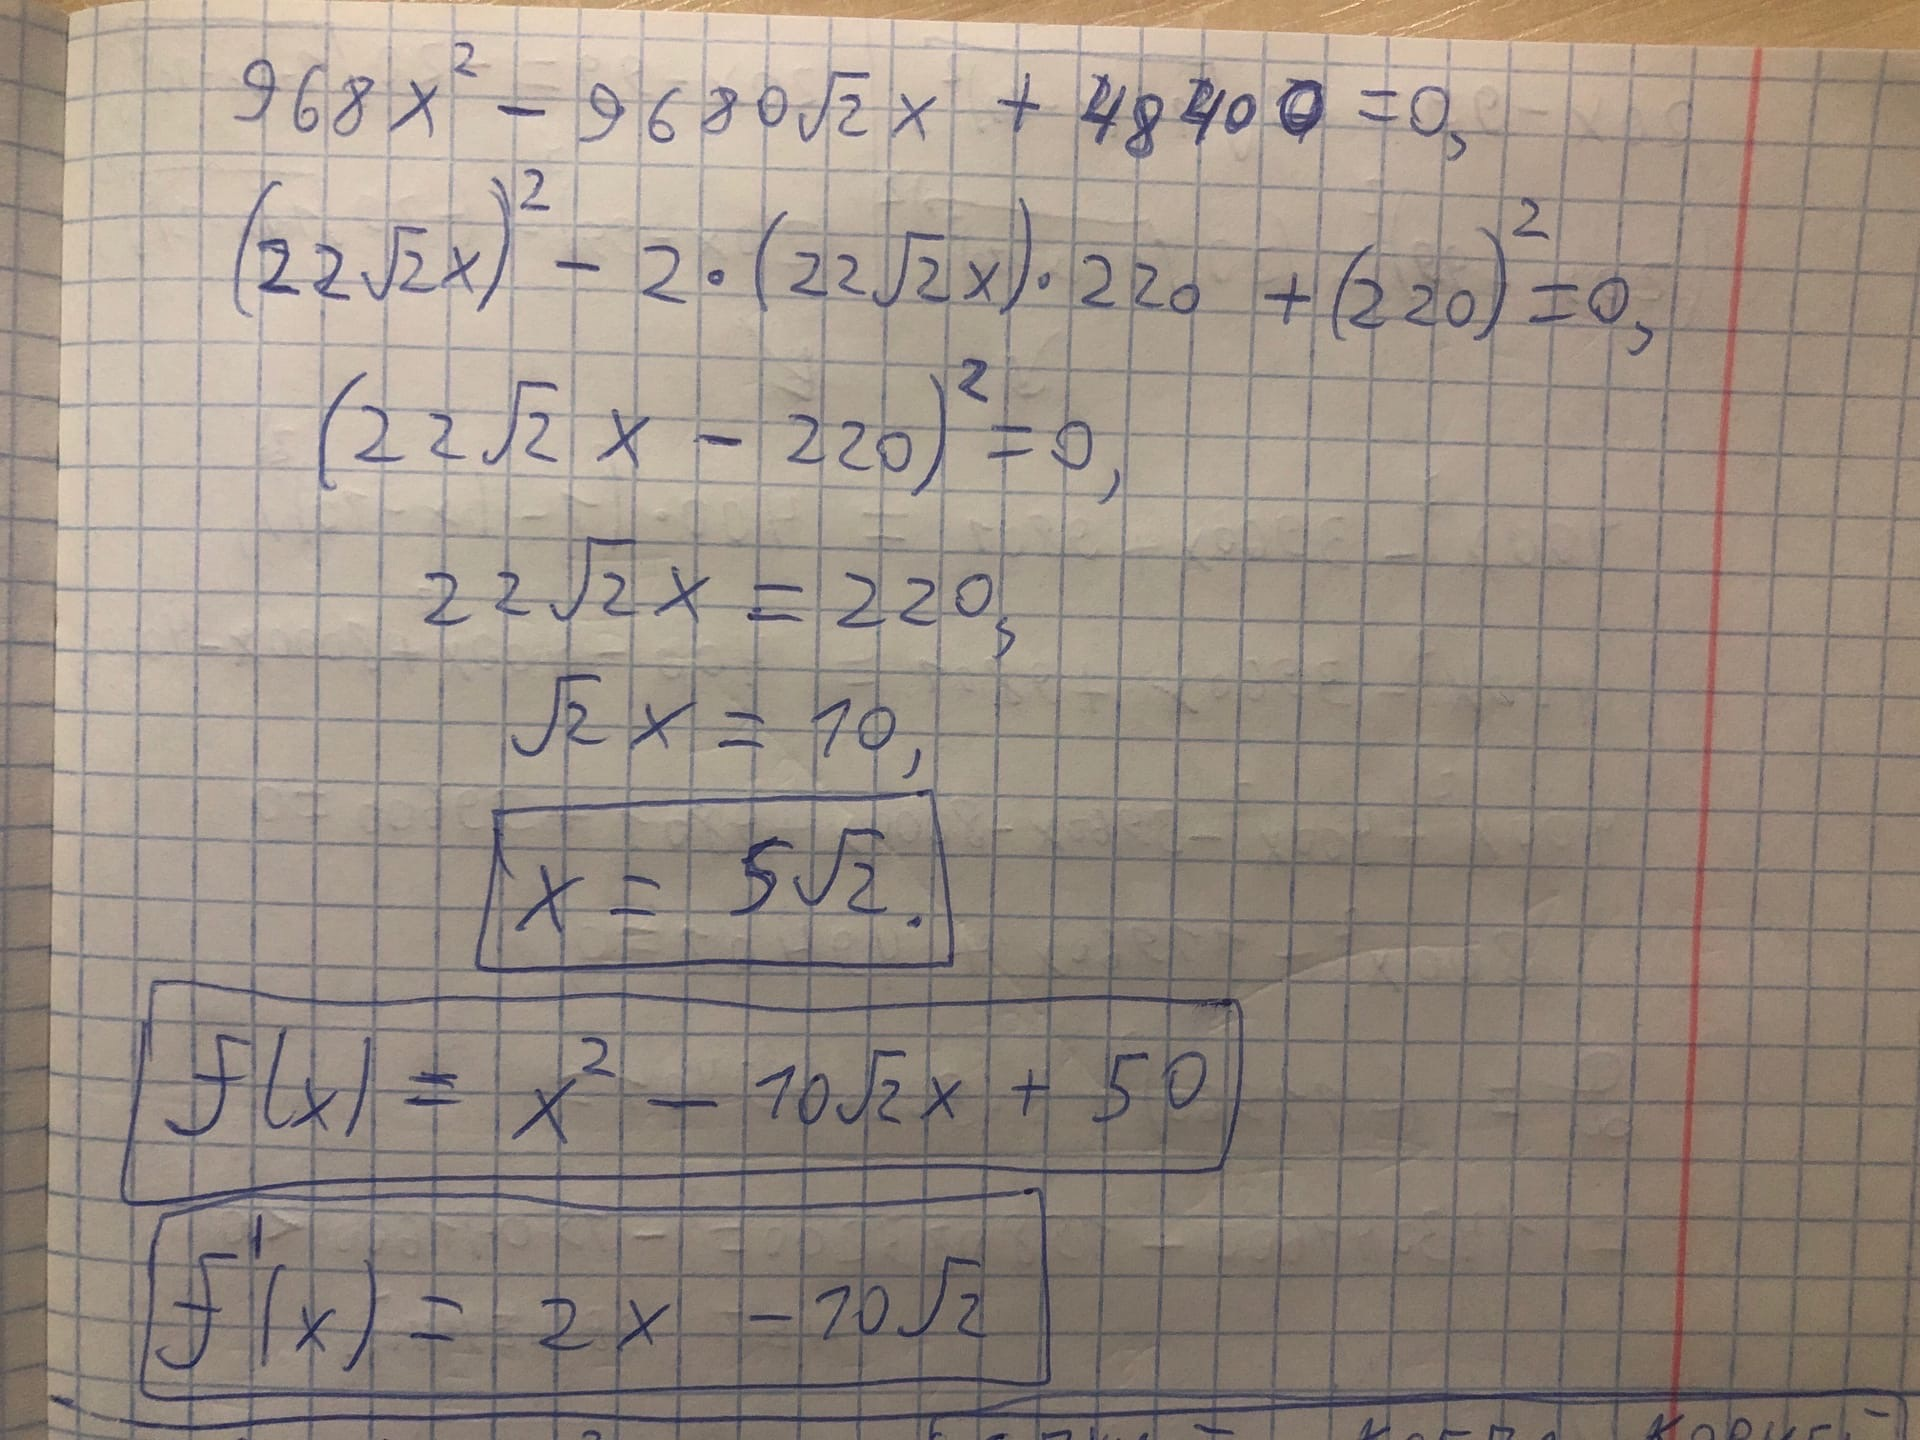 968x² - 9680√2x + 48400 = 0,
(22√2x)² - 2·(22√2x)·220 + (220)² = 0,
(22√2 x - 220)² = 0,
22√2x = 220,
√2 x = 10,
x = 5√2.
f(x) = x² - 10√2x + 50
f'(x) = 2x - 10√2